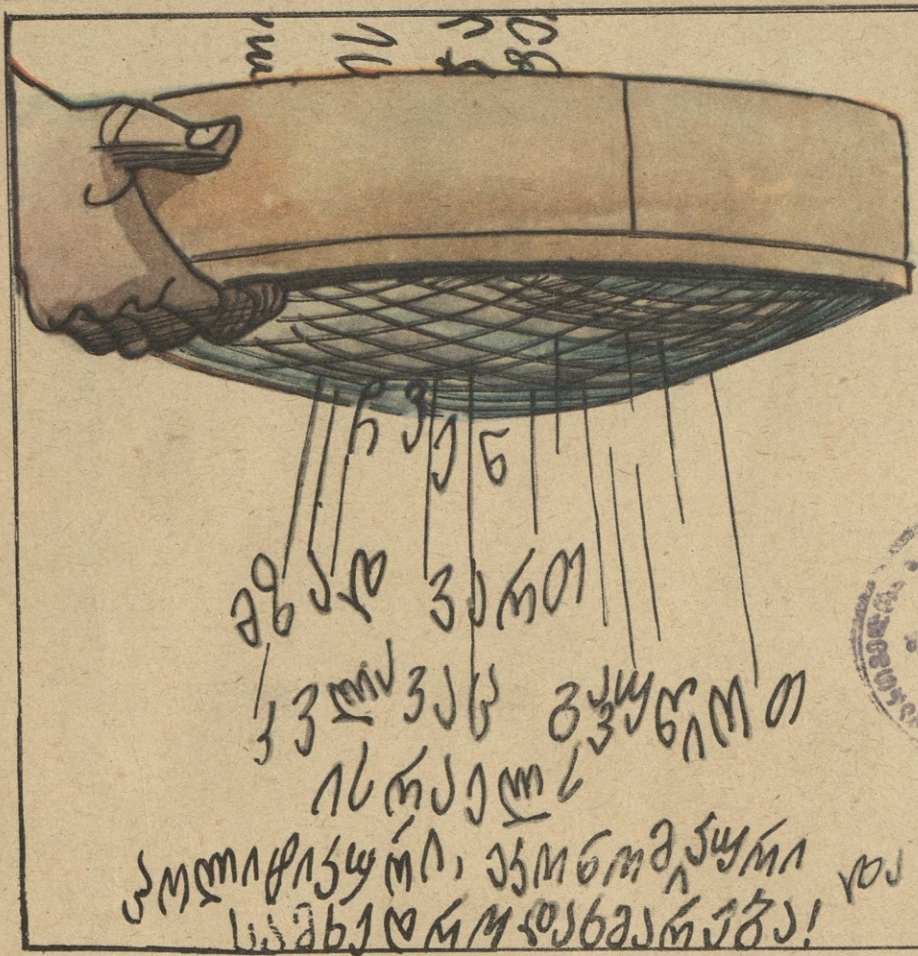 ჩვენ
მზად ვართ
კვლავაც გავუწიოთ
ისრაელს
პოლიტიკური, ეკონომიკური და
სამხედრო დახმარება!